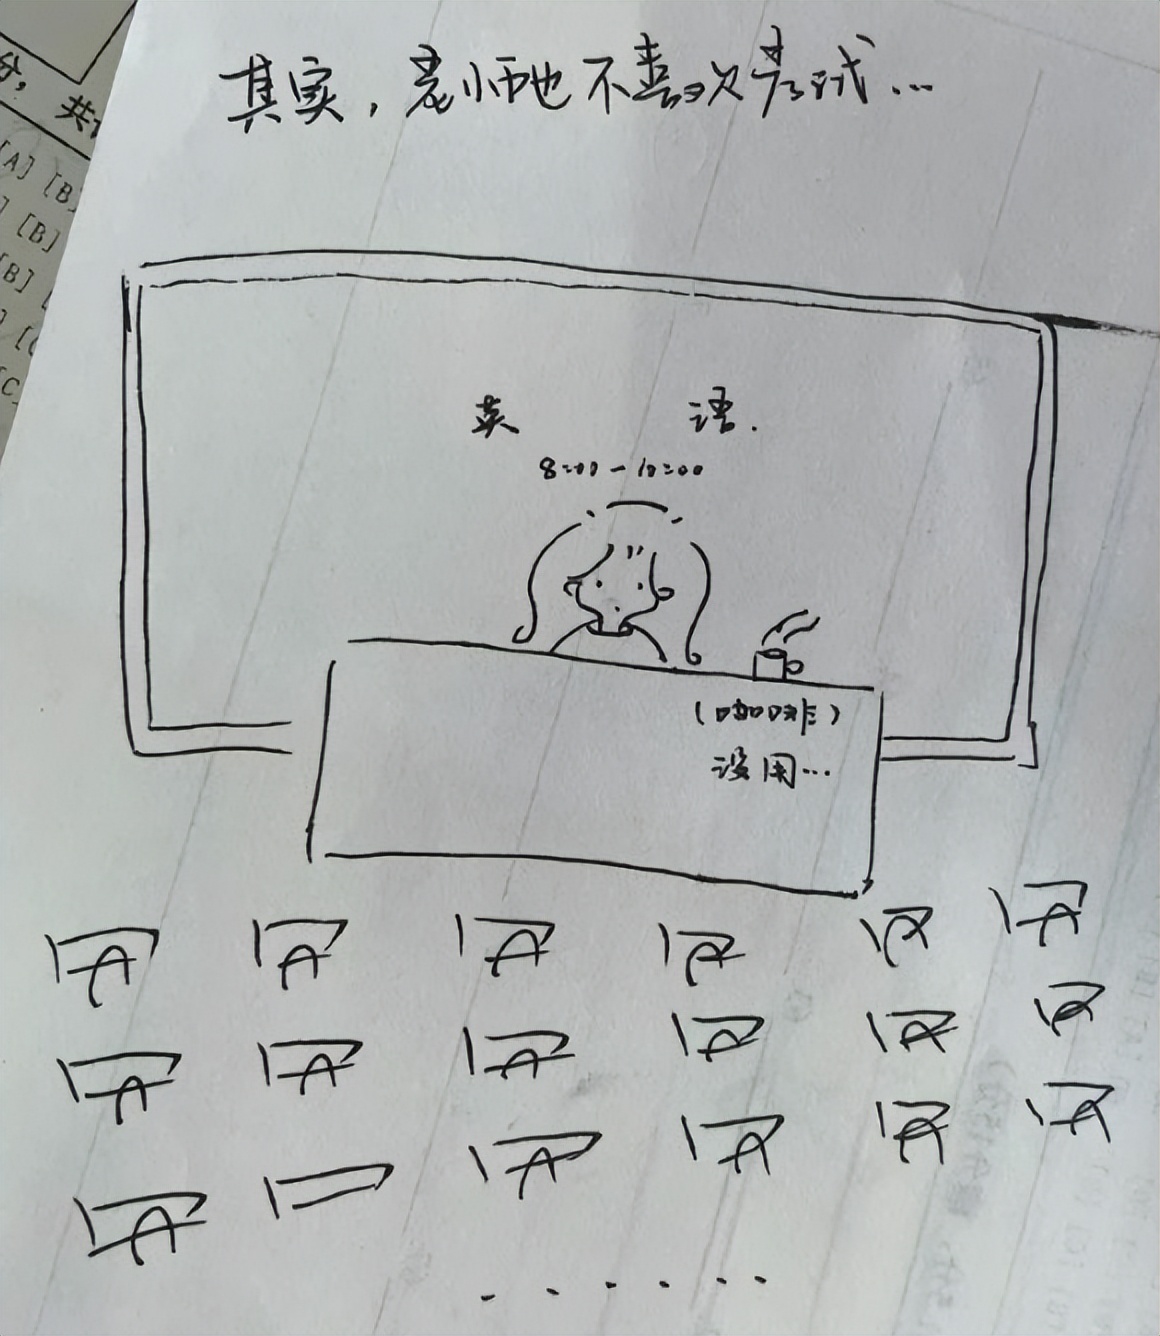 其实，老师也不喜欢考试...
英 语.
8:00-10:00
(咖啡)
没用...
分，共
[A] [B]
[B]
[B]
[C